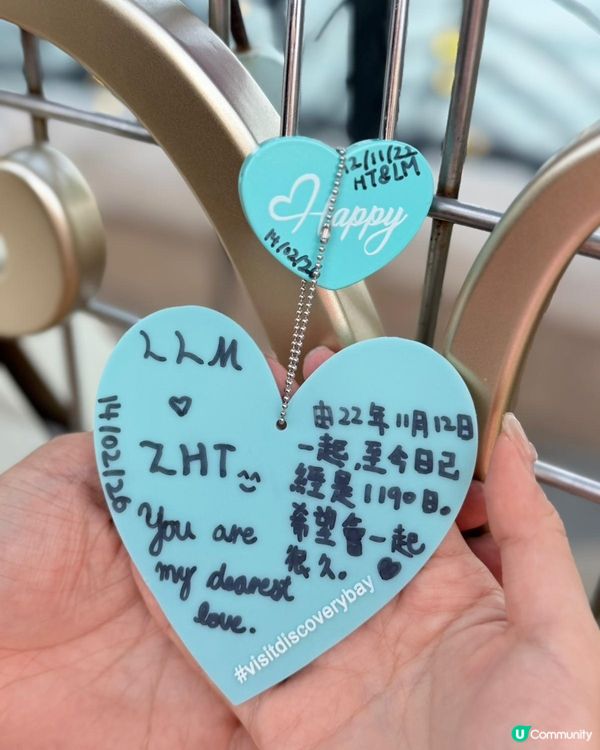 12/11/22
HT&LM
Happy
14/02/26
LLM
♡
ZHT
14/02/26
You are
my dearest
love.
由22年11月12日
一起,至今日己
經是1190日。
希望會一起
很久。
#visitdiscoverybay
U Community